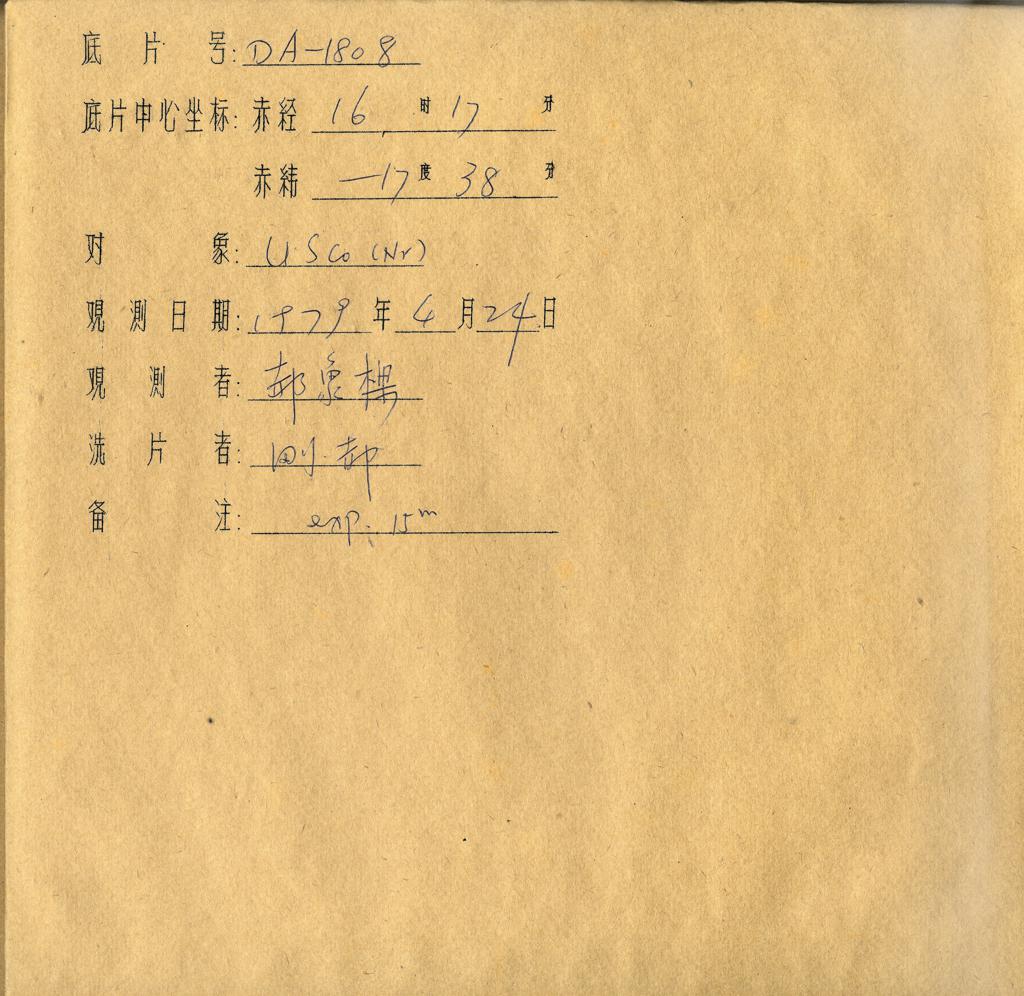 底片号: DA-1808
底片中心坐标: 赤经 16 时 17 分
赤纬 -17 度 38 分
对象: U Sco (Nr)
观测日期: 1979 年 4 月 24 日
观测者: 郝象樑
洗片者: 刚.郝
备注: exp: 15m